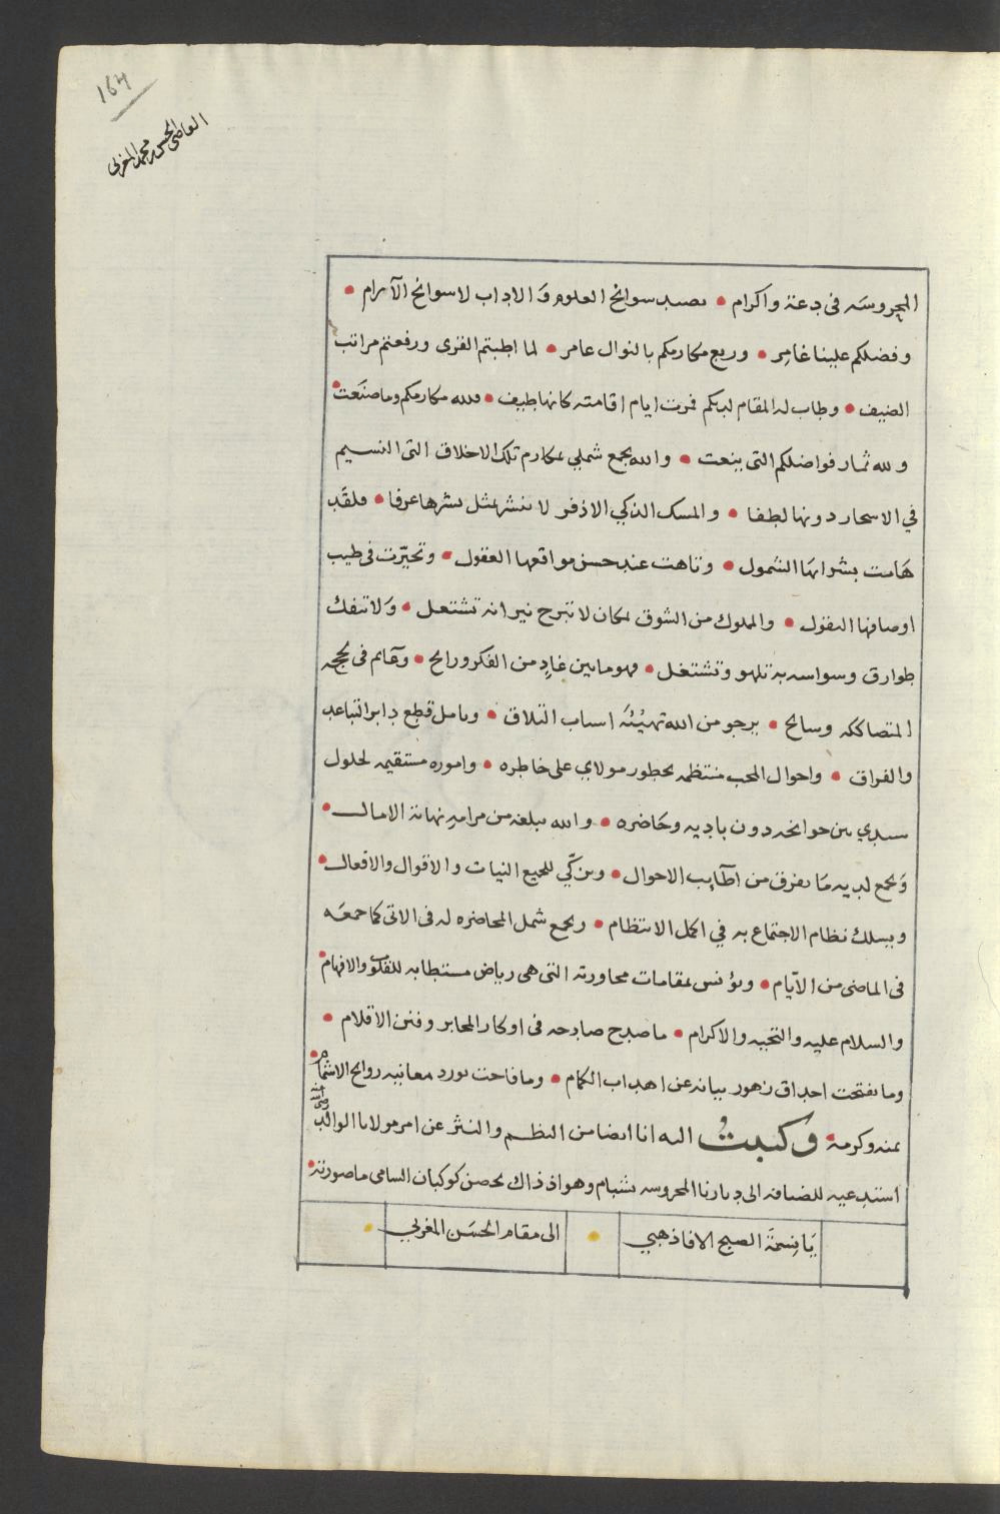 164
القاضي الحسن محمد المغربي
المحروسَه في دعة واكرام • نصيد سوانح العلوم وَالاداب لا سوانح الآرام •
وفضلكم علينا غامِر • وربع مكارمكم بالنوال عامر • لما اطبتم القرى ورفعتم مراتب
الضيف • وطاب له المقام لديكم فمرت ايام اقامته كانها طيف • فلله مكارمكم وما صنَعت •
ولله ثمار فواضلكم التي ينعت • والله يجمع شملي بمكارم تلك الاخلاق التى النسيم
في الاسحار دونها لطفا • والمسك الذكي الاذفر لا ننشر بمثل نشرها عرفا • فلقَد
هَامت بشرابهَا الشمول • وتاهت عند حسن مواقعها العقول • وتحيّرت في طيب
اوصافها النقول • والملوك من الشوق بمكان لا تبرح نيرانه تشتعل • وَلا تنفك
طوارق وسواسه به تلهو وتشتغل • فهو مابين غادٍ من الفكر ورايح • وهَايم في لججه
المتصاككه وسايح • يرجو من الله تهيئَة اسباب التلاق • ويامل قطع دابر التباعد
والفراق • واحوال المحب منتظمه بحطور مولاي على خاطره • واموره مستقيمه لحلول
سيدي بين جوانحه دون باديه وحَاضره • والله يبلغه من مراميه نهاية الامال •
وَيجمع لديه مَا تفرق من اطَايب الاحوال • ويزكّي للجميع النيات والاقوال والافعال •
ويسلك نظام الاجتماع به في اكمل الانتظام • ويجمع شمل المحاضره له في الاتي كما جمعَه
في الماضي من الايّام • ويؤنس بمقامات محاورته التي هي رياض مستطابه للقلوب والافهام •
والسلام عليه والتحيه والاكرام • ما صدح صادحه في اوكار المحابر وفنن الاقلام •
وما تفتحت احداق زهور بيانه عن اهداب الكمام • وما فاحت بورد معانيه روايح الاشمام •
بمنه وكرمه • وكتبتُ اليه انا ايضا من النظم والنثر عن امر مولانا الوالد رضي الله عنه
استدعيه للضيافه الى ديارنا المحروسه بشبام وهو اذ ذاك بحصن كوكبان السامي ما صورته •
يَا نِسمَة الصبح الافاذهبي • الى مقام الحسَن المغربي •